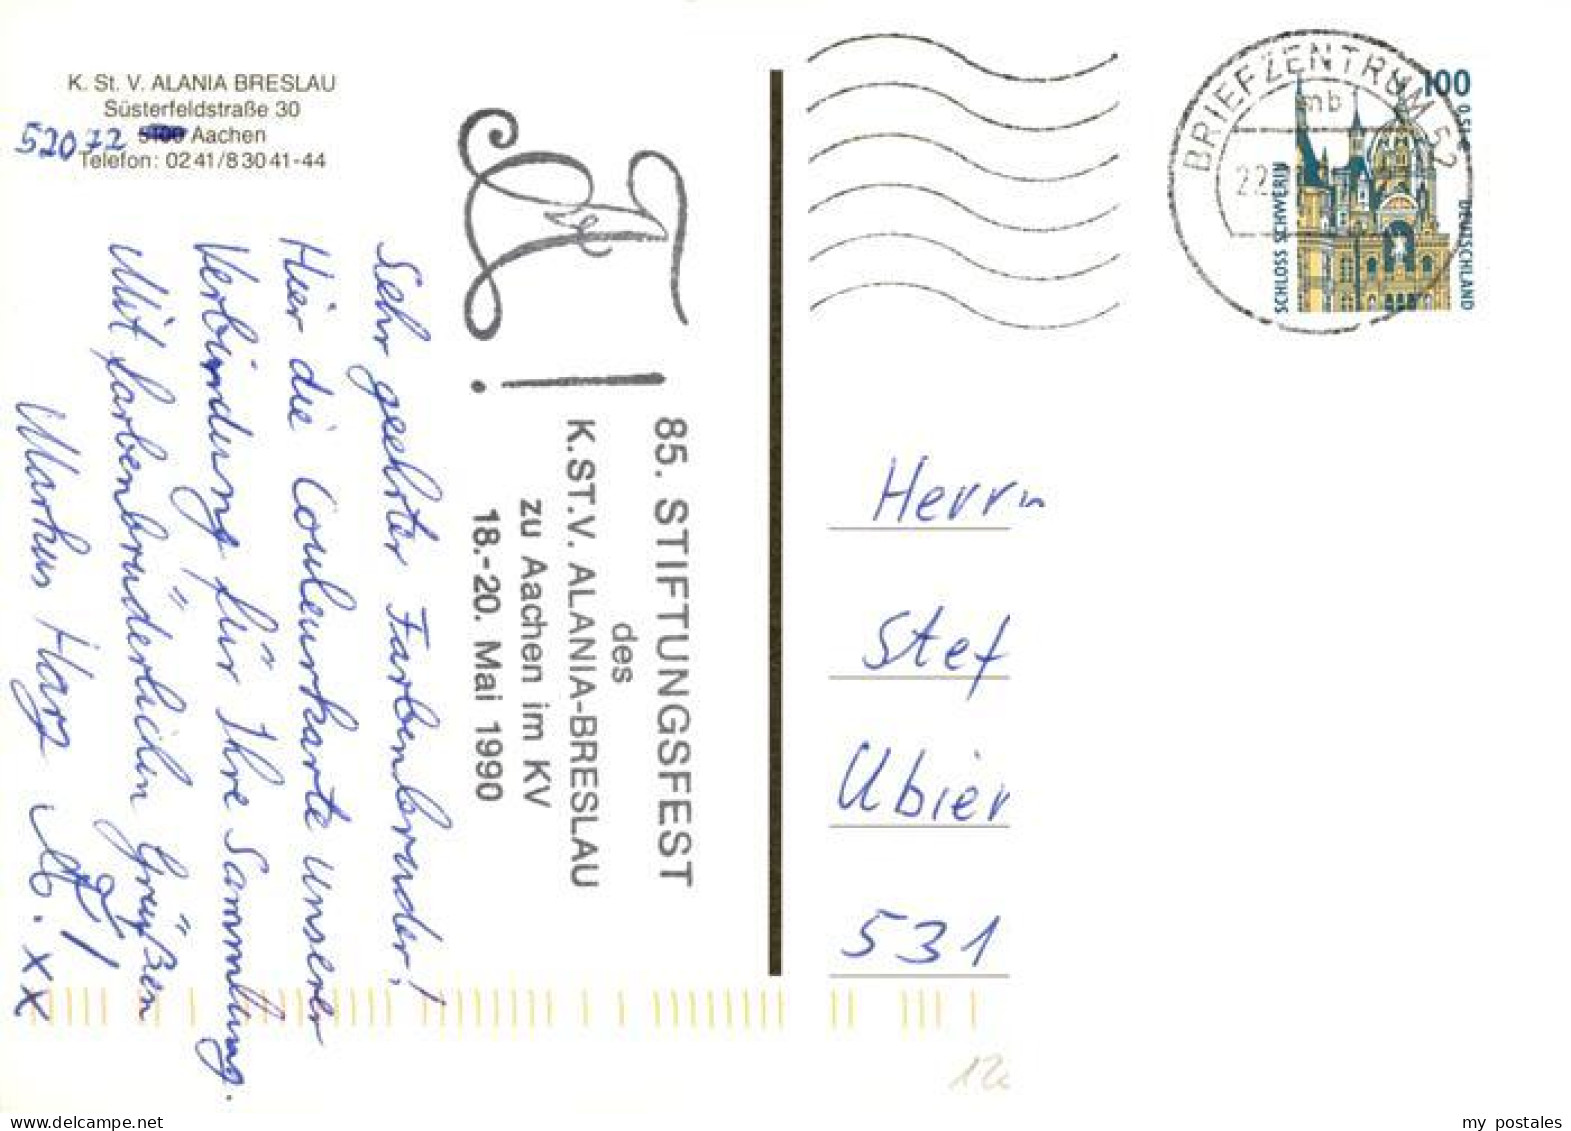 K. St. V. ALANIA BRESLAU
Süsterfeldstraße 30
52072 5100 Aachen
Telefon: 02 41/8 30 41-44
85. STIFTUNGSFEST
des
K.ST.V. ALANIA-BRESLAU
zu Aachen im KV
18.-20. Mai 1990
Sehr geehrter Farbenbruder!
Hier die Couleurkarte unserer
Verbindung für Ihre Sammlung.
Mit farbenbrüderlichen Grüßen
Markus Harz
xx
BRIEFZENTRUM 52
mb
22
100
0,51 €
SCHLOSS SCHWERIN
DEUTSCHLAND
Herrn
Stef
Ubier
531
12
my_postales